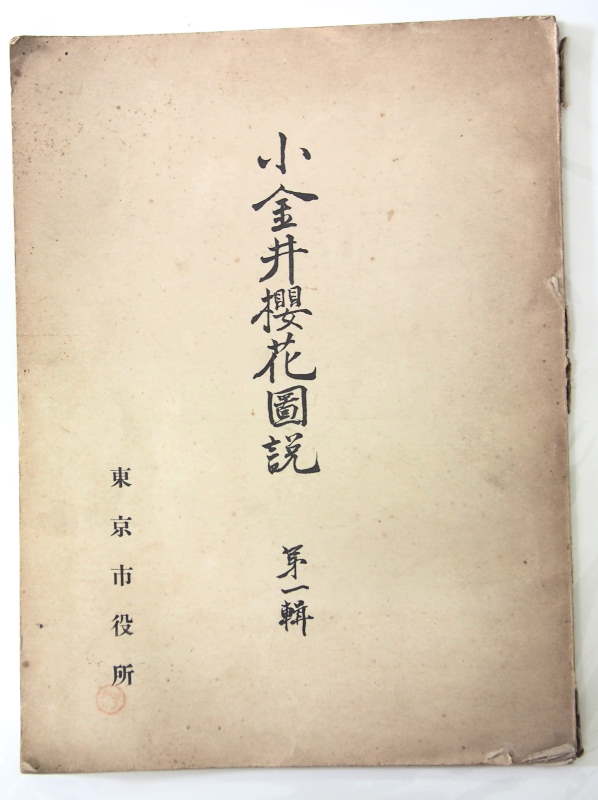 小金井櫻花圖説
第一輯
東京市役所